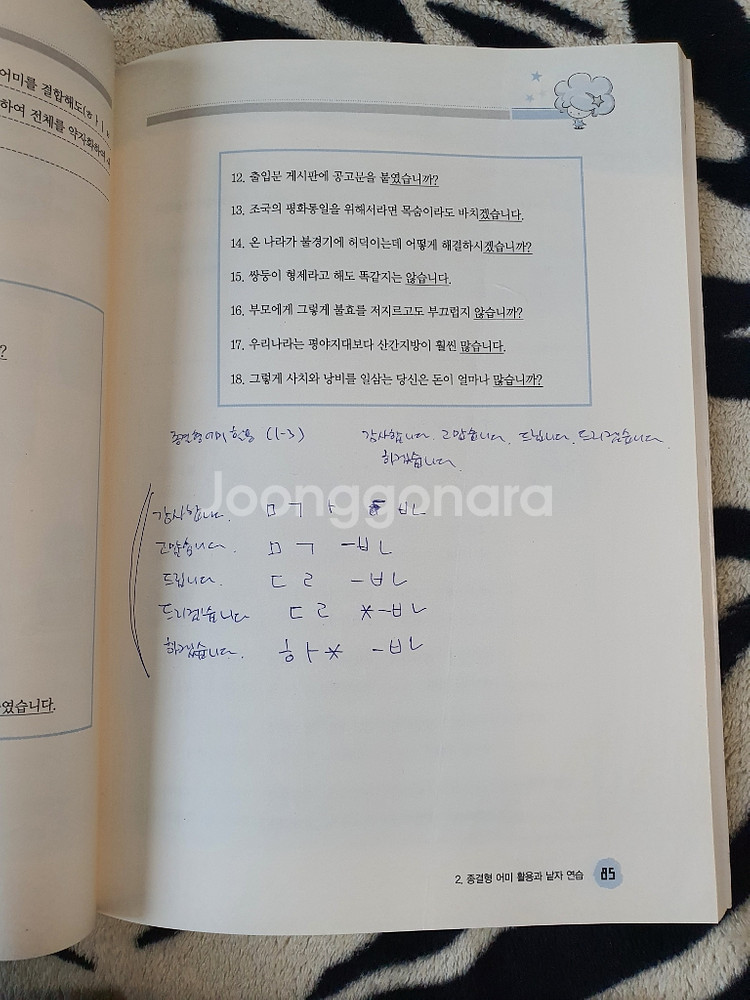 어미를 결합해도(ㅎ)
하여 전체를 약자화하여
?
였습니다.
12. 출입문 게시판에 공고문을 붙였습니까?
13. 조국의 평화통일을 위해서라면 목숨이라도 바치겠습니다.
14. 온 나라가 불경기에 허덕이는데 어떻게 해결하시겠습니까?
15. 쌍둥이 형제라고 해도 똑같지는 않습니다.
16. 부모에게 그렇게 불효를 저지르고도 부끄럽지 않습니까?
17. 우리나라는 평야지대보다 산간지방이 훨씬 많습니다.
18. 그렇게 사치와 낭비를 일삼는 당신은 돈이 얼마나 많습니까?
종결형어미 활용 (1-3) 감사합니다. 고맙습니다. 드립니다. 드리겠습니다.
하겠습니다.
Joonggonara
감사합니다. ㅁ ㄱ ㅏ ㅂㄴ
고맙습니다. ㅁ ㄱ ㅡㅂㄴ
드립니다. ㄷ ㄹ ㅡㅂㄴ
드리겠습니다 ㄷ ㄹ ㅡㅂㄴ
하겠습니다. ㅎㅏ ㅡㅂㄴ
2. 종결형 어미 활용과 낱자 연습 85